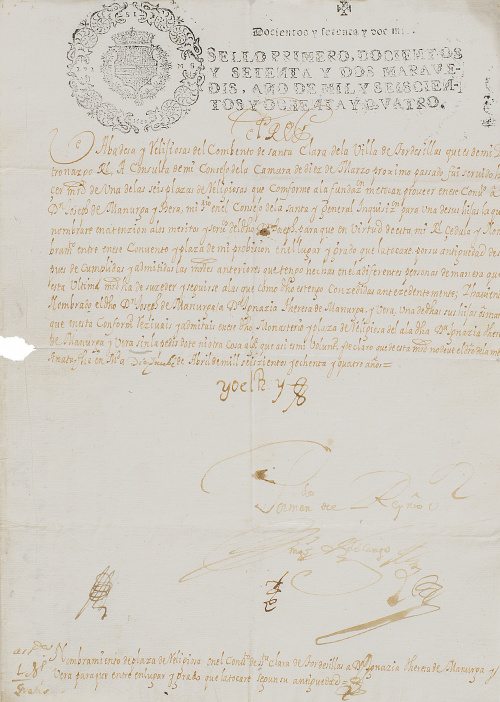 Docientos y setenta y dos mrs.
SELLO PRIMERO, DOCIENTOS
Y SETENTA Y DOS MARAVE-
DIS, AÑO DE MIL Y SEISCIEN-
TOS Y OCHENTA Y QVATRO.
El Rey
Abadesa y Religiosas del Combento de santa Clara de la Villa de Tordesillas que es de mi Pa
tronazgo Rl. A Consulta de mi Consejo de la Camara de diez de Marzo proximo passado fui servido ha
cer mrd de Una de las seis plazas de Religiosas que conforme a la fundazn me tocan proveer en ese Combto a
Dn Joseph de Manurga y Vera, mi srio en el Consejo de la santa y General Inquisizn para Una de sus hijas la que
nombrare en atenzion a los meritos y servos del dho Dn Joseph, para que en Virtud de esta mi Rl Zedula y Nom
bramto entre en ese Convento y plaza de mi probision en el lugar y grado que la tocare por su antiguedad des
pues de Cumplidas y admitidas las mrdes anteriores que tengo hechas en el a diferentes personas de manera que
esta Ultima mrd ha de suzeder y seguirse a las que como dho es tengo Conzedidas antezedentemente; I haviendo
Nombrado el dho Dn Joseph de Manurga a Da Ignazia Theresa de Manurga, y Vera, Una de dhas sus hijas os mando
que en esta Conformd rezivais y admitais en ese dho Monasterio y plaza de Religiosa del a la dha Da Ignazia Theresa
de Manurga y Vera sin la pedir dote ni otra Cosa alga que asi es mi Volund, y declaro que de esta mrd no deve el dro de la media
Anata, fha en Md a de Abril de mill seiszientos y ochenta y quatro años=
yo el Rey
Nombramiento de plaza de Religiosa en el Combto de Sta Clara de Tordesillas a Da Ignazia Theresa de Manurga y
Vera para que entre en lugar y grado que la tocare segun su antiguedad=